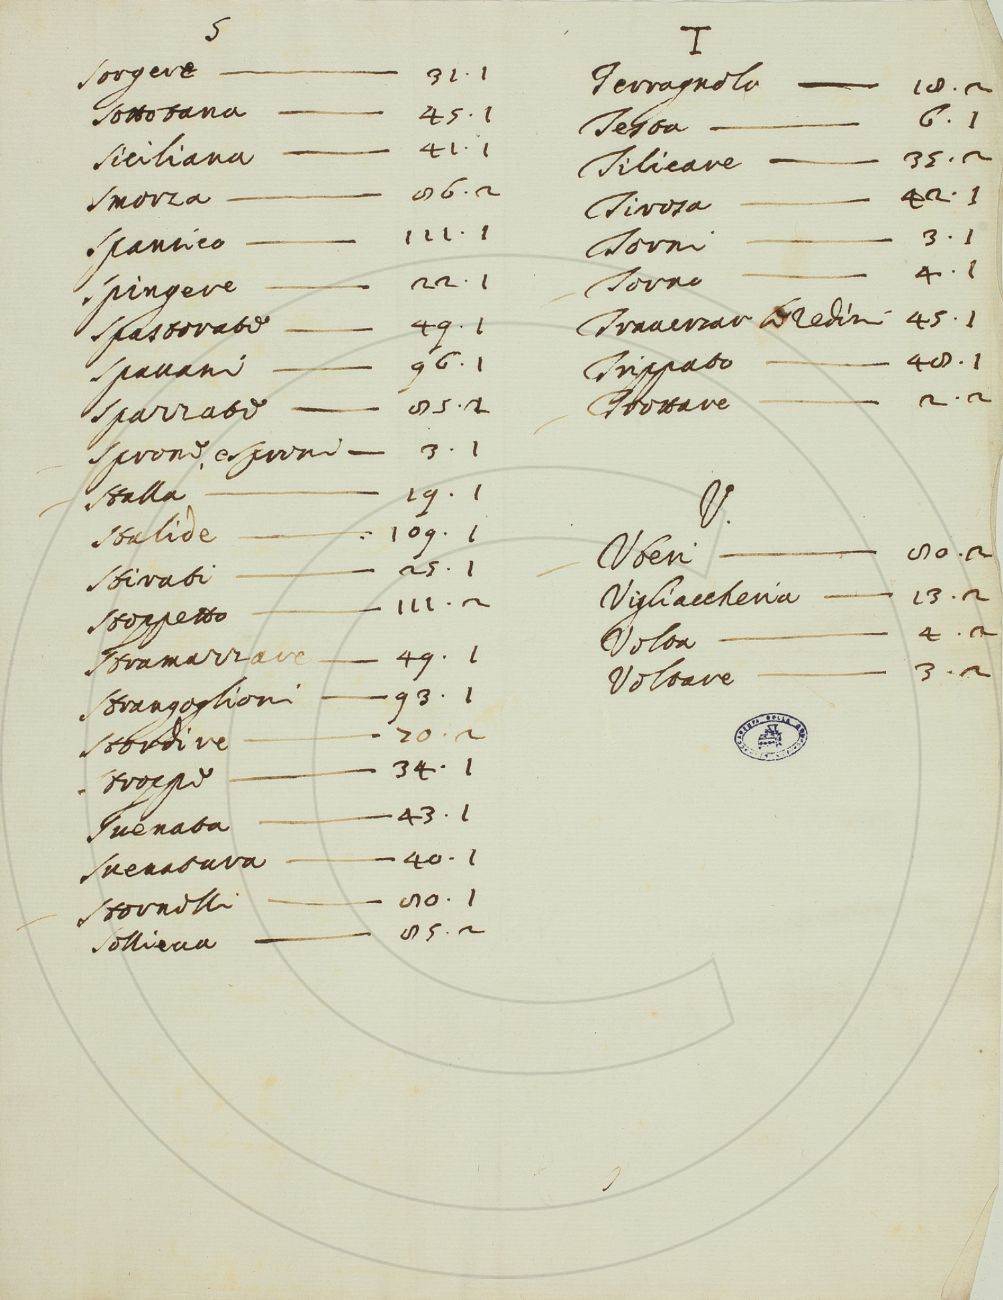 S
Sorgere 31.1
Sottosana 45.1
Siciliana 41.1
Smorza 86.2
Spannico 111.1
Spingere 22.1
49.1
Spauani 96.1
85.2
Sprone, e Sproni 3.1
Stalla 19.1
Stalide 109.1
Stirati 25.1
Stoppetto 111.2
Stramazzare 49.1
Strangoglioni 93.1
Stordire 20.2
34.1
Suenata 43.1
Suenatura 40.1
Stornelli 80.1
Sollieua 85.2
T
Terragnolo 18.2
Testa 6.1
35.2
Tirosa 42.1
Torni 3.1
Torno 4.1
Trauerzar Redini 45.1
Trippato 48.1
Trottare 2.2
V.
Vberi 80.2
Vigliaccheria 13.2
Volta 4.2
Voltare 3.2